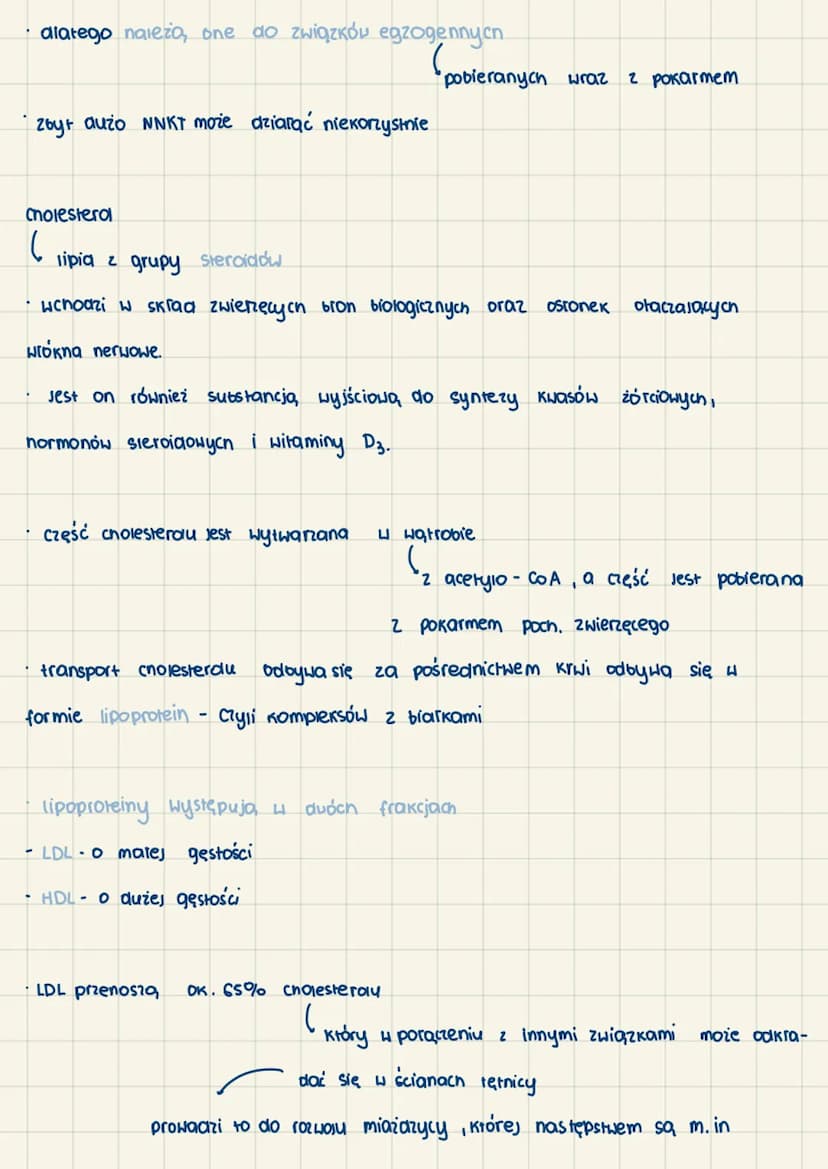 · dlatego należą one do związków egzogennych
pobieranych wraz z pokarmem
· zbyt dużo NNKT może działać niekorzystnie
cholesterol
lipid z grupy steroidów
· wchodzi w skład zwierzęcych błon biologicznych oraz osłonek otaczających
włókna nerwowe.
· Jest on również substancją wyjściową do syntezy kwasów żółciowych,
hormonów steroidowych i witaminy D₃.
· część cholesterolu jest wytwarzana w wątrobie
z acetylo - CoA, a część jest pobierana
z pokarmem poch. zwierzęcego
· transport cholesterolu odbywa się za pośrednictwem krwi odbywa się w
formie lipoprotein - czyli kompleksów z białkami
· lipoproteiny występują w dwóch frakcjach
- LDL - o małej gęstości
- HDL - o dużej gęstości
· LDL przenoszą ok. 65% cholesterolu
który w połączeniu z innymi związkami może odkła-
dać się w ścianach tętnicy
prowadzi to do rozwoju miażdżycy, której następstwem są m.in